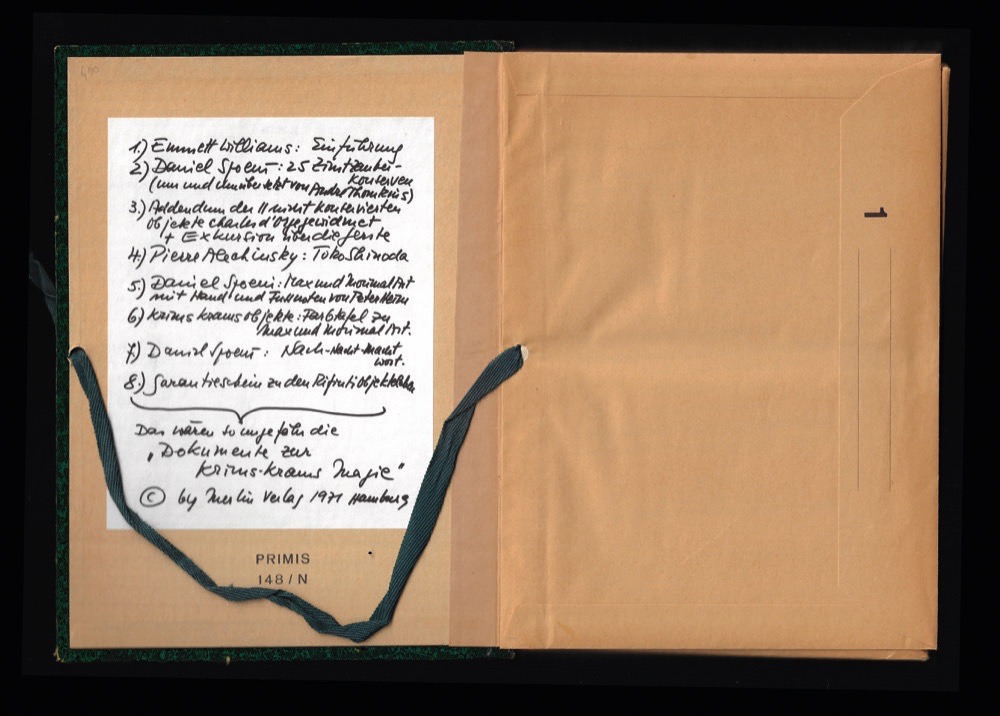 1.) Emmett Williams: Einführung
2.) Daniel Spoerri: 25 Zimtzauber-
konserven
(um und umübersetzt von André Thomkins)
3.) Addendum der 11 nicht konservierten
Objekte charles d'Orgegewidmet
+ Exkursion über die Gerste
4.) Pierre Alechinsky: Toko Shinoda
5.) Daniel Spoerri: Max und Morimal Art
mit Hand und Fußnoten von Peter Heim
6.) Krims Krams objekte: Farbtafel zu
Max und Morimal Art.
7.) Daniel Spoerri: Nach-Nacht-Macht
wort.
8.) Garantieschein zu den
Das wären so ungefähr die
„Dokumente zur
Krims-Krams Magie"
© by Merlin Verlag 1971 Hamburg
PRIMIS
148/N
1